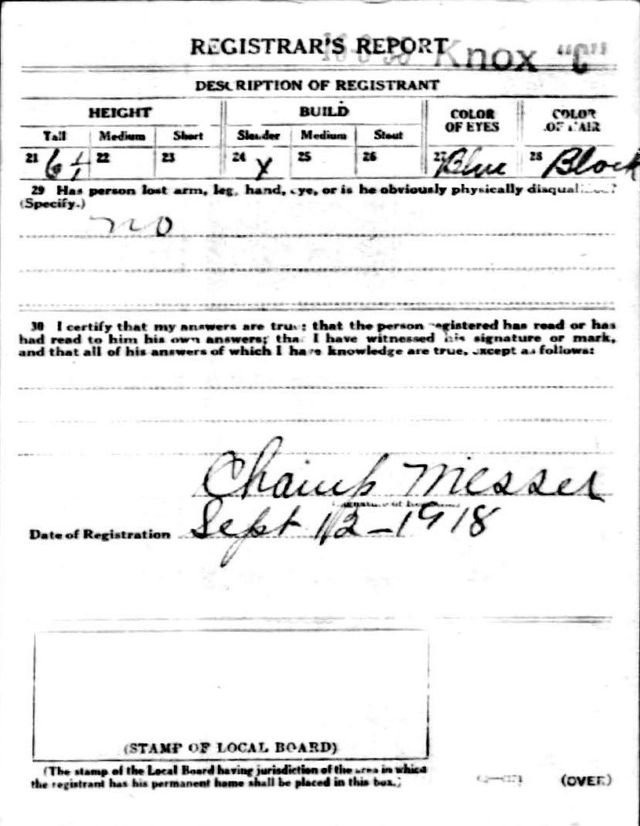 REGISTRAR'S REPORT
Knox "C"
DESCRIPTION OF REGISTRANT
HEIGHT BUILD COLOR OF EYES COLOR OF HAIR
Tall Medium Short Slender Medium Stout
21 6 1 22 23 24 x 25 26 27 Blue 28 Black
29 Has person lost arm, leg, hand, eye, or is he obviously physically disqualified?
(Specify.)
no
30 I certify that my answers are true; that the person registered has read or has
had read to him his own answers; that I have witnessed his signature or mark,
and that all of his answers of which I have knowledge are true, except as follows:
Champ Messer
Date of Registration Sept 12-1918
(STAMP OF LOCAL BOARD)
(The stamp of the Local Board having jurisdiction of the area in which
the registrant has his permanent home shall be placed in this box.)
(OVER)